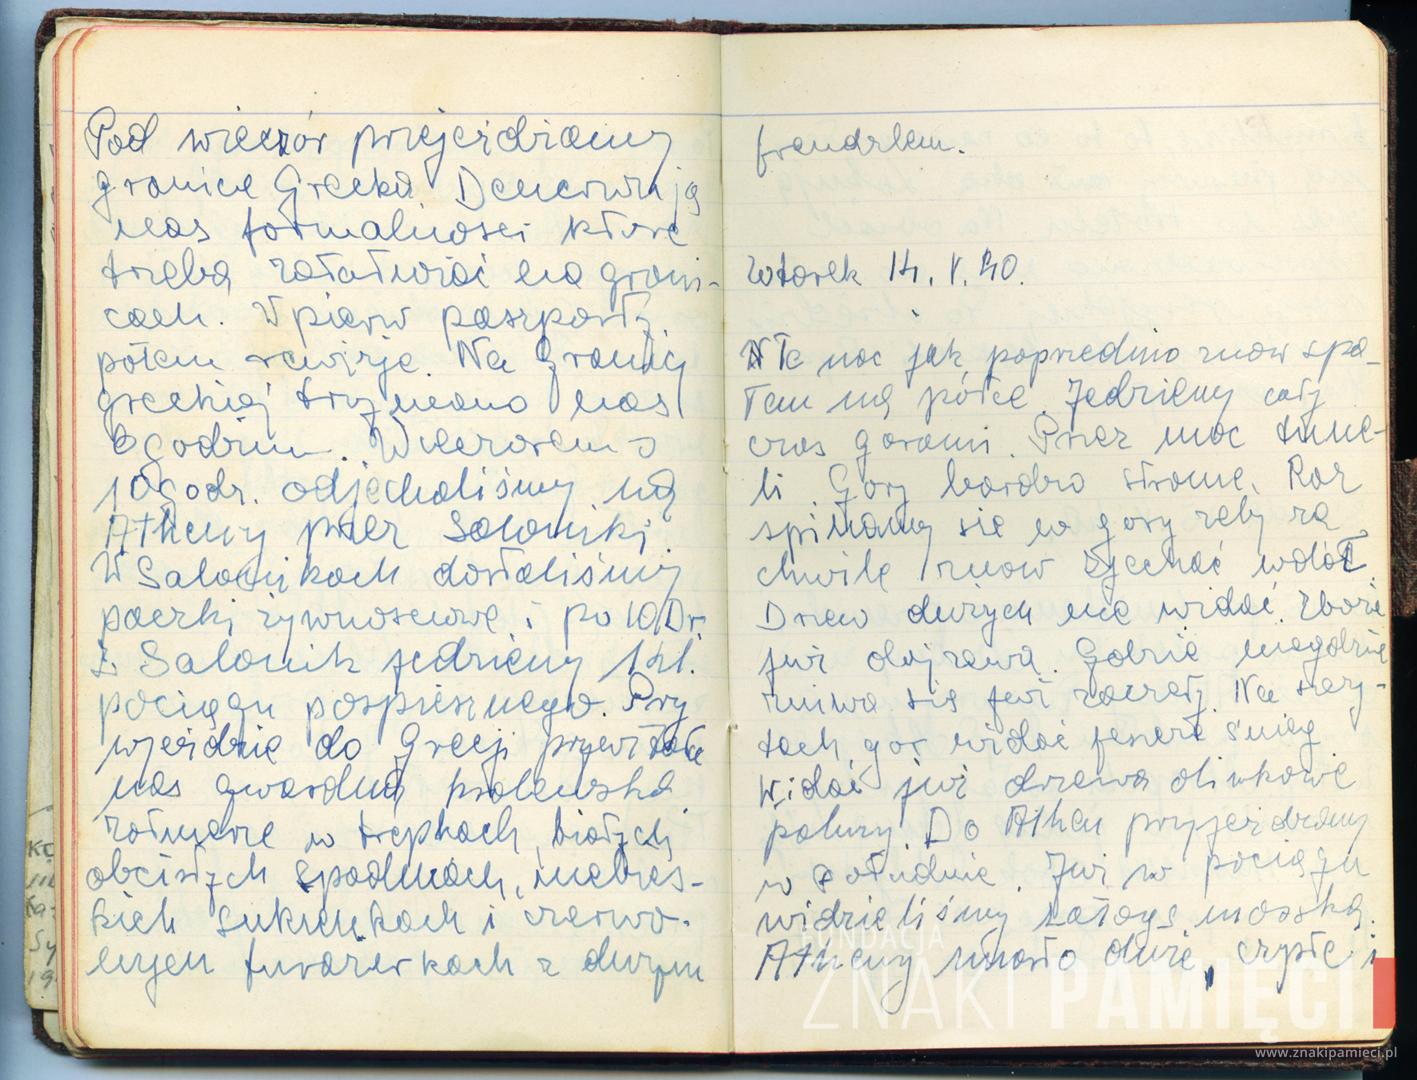 Pod wieczór przejeżdżamy
granice Grecką Denerwują
nas formalności które
trzeba załatwiać na grani-
cach. W pierw paszporty
potem rewizje. Na granicy
greckiej trzymano nas
6 godzin. Wieczorem o
10 godz. odjechaliśmy na
Atheny przez Saloniki.
W Salonikach dostaliśmy
paczki żywnosciowe i po 10 Dr.
Z Salonik jedziemy 1 kl.
pociągu pospiesznego. Przy
wjeździe do Grecji przywitała
nas gwardia królewska
żołnierze w trepkach, białych
obcisłych spodniach, niebies-
kich sukienkach i czerwo-
nych furażerkach z dużym
frendzlem.
Wtorek 14. V. 40.
Te noc jak poprzednio znow spa-
łem na półce. Jedziemy cały
czas gorami. Przez noc tune-
li. Gory bardzo strome. Raz
spinamy sie w gory zeby za
chwile znow zjechać wdół.
Drzew dużych nie widać zboże
już dojrzewa. Gdzie niegdzie
zniwa się już zaczeły. Na szczy-
tach gor widać jeszcze śnieg
Widać już drzewa oliwkowe
palmy. Do Athen przyjezdzamy
w południe. Już w pociągu
widzieliśmy zatoge morską.
Atheny miasto duże, czyste i
FUNDACJA
ZNAKI PAMIĘCI
www.znakipamieci.pl